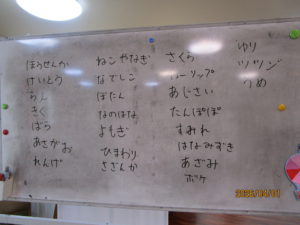 ほうせんか
けいとう
らん
きく
ばら
あさがお
れんげ
ねこやなぎ
なでしこ
ぼたん
なのはな
よもぎ
ひまわり
さざんか
さくら
チューリップ
あじさい
たんぽぽ
すみれ
はなみずき
あざみ
ボケ
ゆり
ツツジ
うめ
2025/04/01